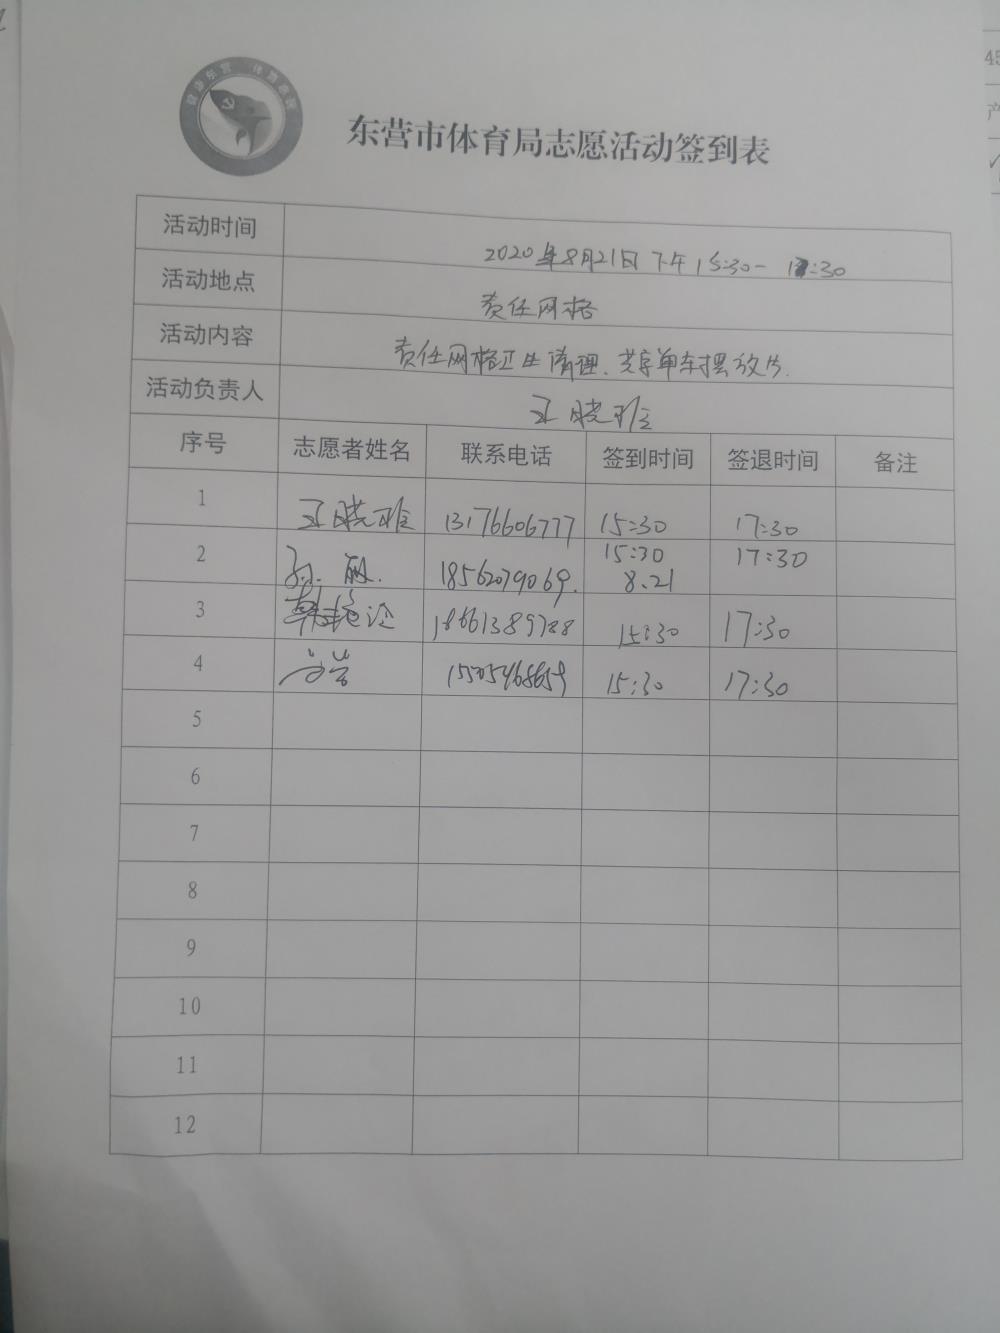 健康东营 体育亮剑
东营市体育局志愿活动签到表
活动时间 2020年8月21日下午15:30-17:30
活动地点 责任网格
活动内容 责任网格卫生清理、共享单车摆放
活动负责人 王晓雅
序号 志愿者姓名 联系电话 签到时间 签退时间 备注
1 王晓雅 13176606777 15:30 17:30
2 孙丽. 18562079069. 15:30 8.21 17:30
3 15:30 17:30
4 15:30 17:30
5
6
7
8
9
10
11
12
45
产